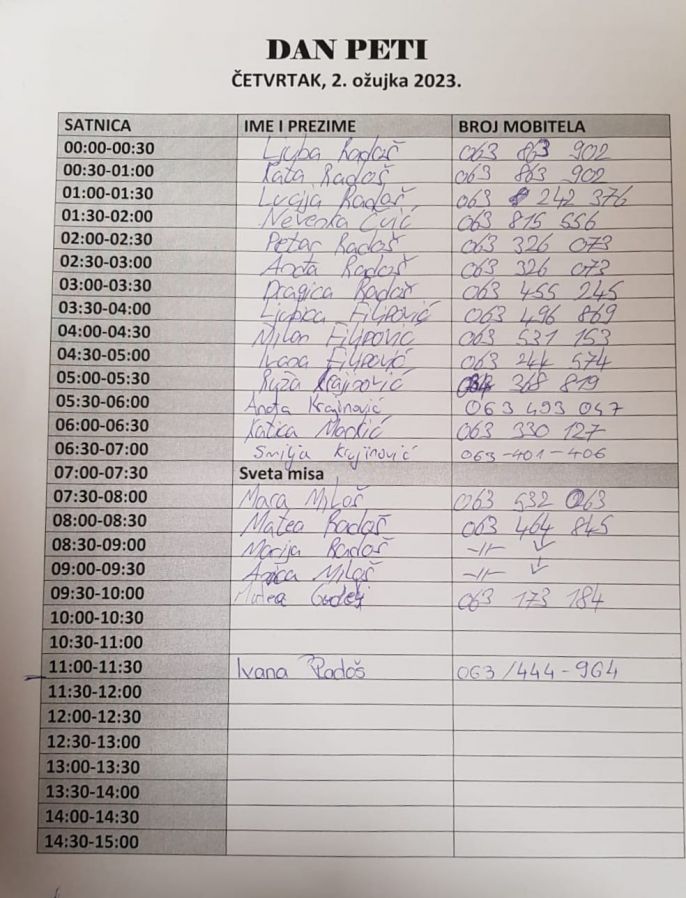 DAN PETI
ČETVRTAK, 2. ožujka 2023.
SATNICA IME I PREZIME BROJ MOBITELA
00:00-00:30 Ljuba Radoš 063 863 902
00:30-01:00 Kata Radoš 063 863 902
01:00-01:30 Lucija Radoš 063 242 376
01:30-02:00 Nevenka Čuić 063 815 556
02:00-02:30 Petar Radoš 063 326 073
02:30-03:00 Anđa Radoš 063 326 073
03:00-03:30 Dragica Radoš 063 455 245
03:30-04:00 Ljubica Filipović 063 496 869
04:00-04:30 Milan Filipović 063 531 153
04:30-05:00 Ivana Filipović 063 244 574
05:00-05:30 Ruža Krajinović 368 819
05:30-06:00 Anđa Krajinović 063 493 047
06:00-06:30 Katica 063 330 127
06:30-07:00 Smilja Krajinović 063-401-406
07:00-07:30 Sveta misa
07:30-08:00 Mara Miloš 063 532 063
08:00-08:30 Matea Radoš 063 464 845
08:30-09:00 Marija Radoš -||-
09:00-09:30 Anica Miloš -||-
09:30-10:00 063 173 184
10:00-10:30
10:30-11:00
11:00-11:30 Ivana Radoš 063/444-964
11:30-12:00
12:00-12:30
12:30-13:00
13:00-13:30
13:30-14:00
14:00-14:30
14:30-15:00